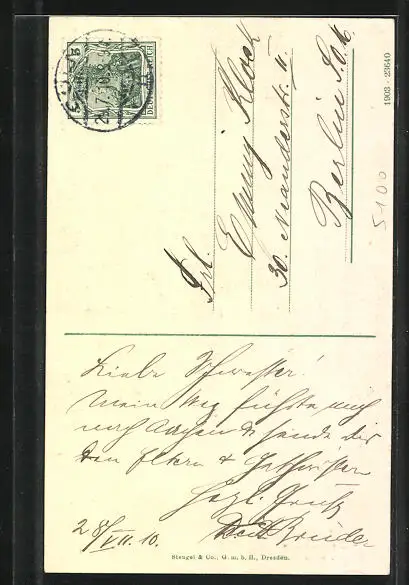 Frl.
Emmy Klock
30. Neanderstr. 11
Berlin S.O.
5100
1903 - 23640
DEUTSCHES REICH
Liebe Schwester!
Mein Weg führte mich
nach Aachen & sende dir
den Eltern & Geschwistern
herzl. Gruß
Dein Bruder
28/VII. 10.
Stengel & Co., G. m. b. H., Dresden.